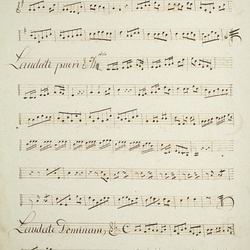 Laudate pueri
Laudate Dominum,